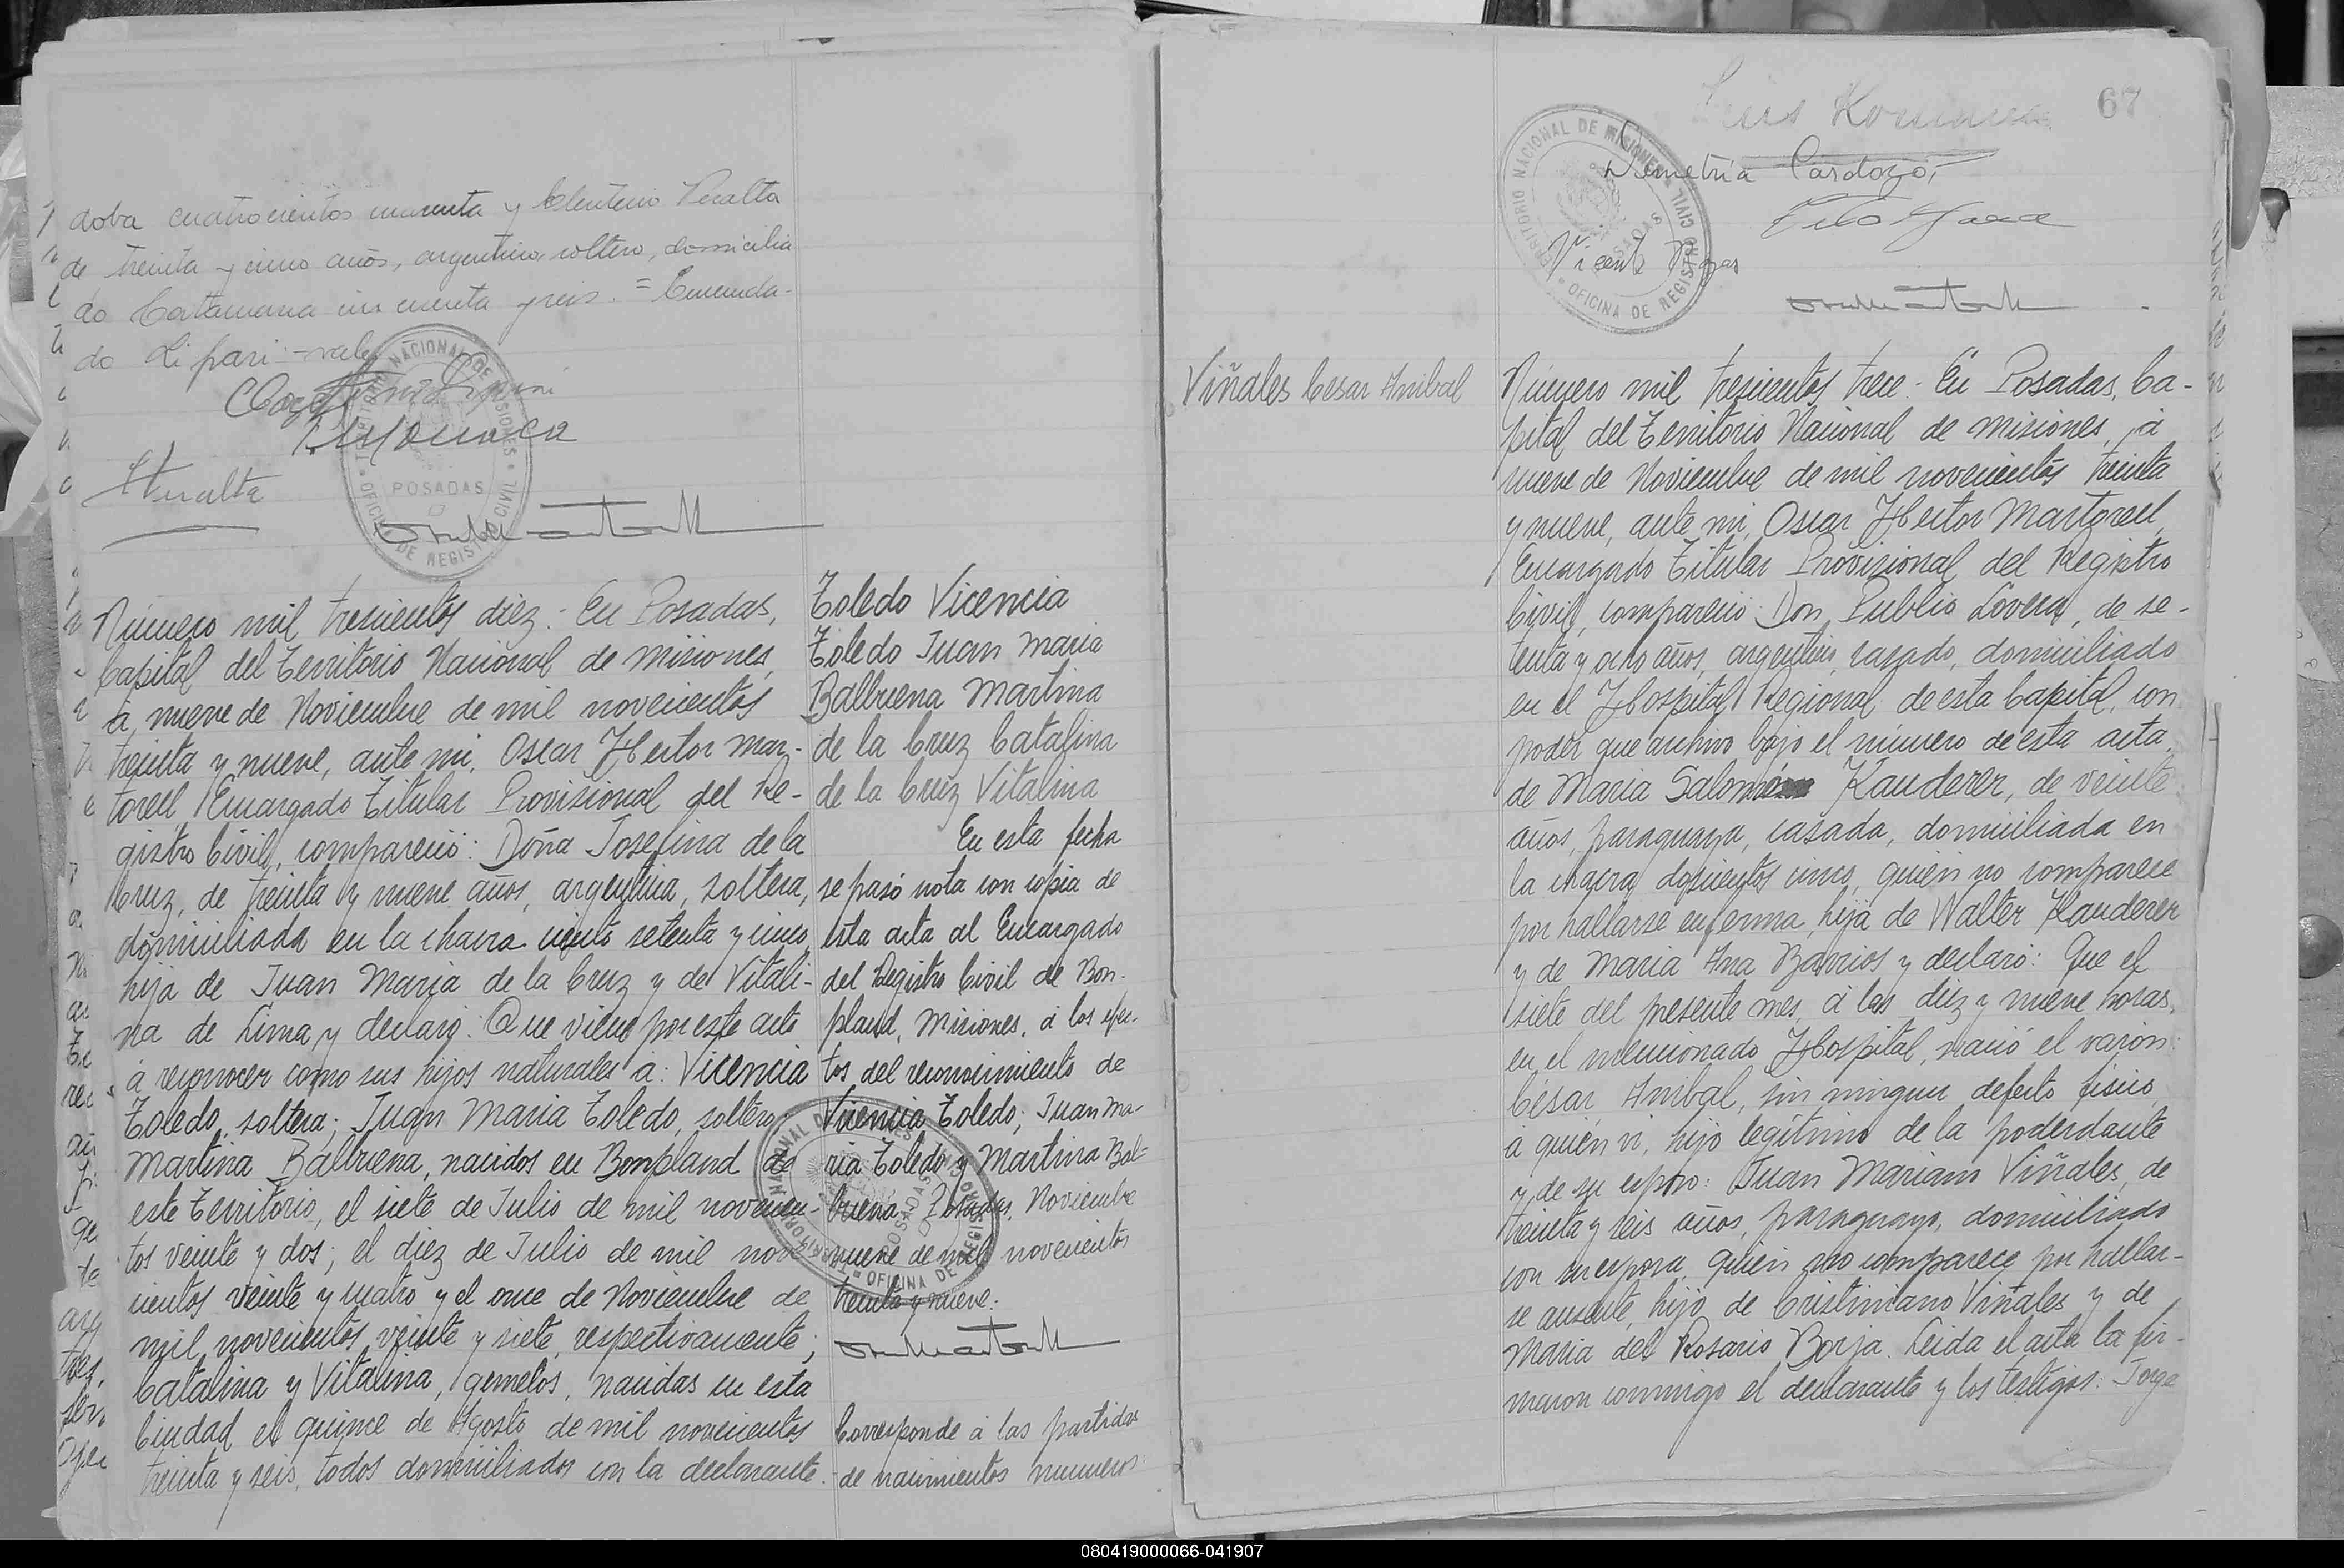 doba cuatrocientos cuarenta y Eleuterio Peralta
de treinta y cinco años, argentino, soltero, domicilia
do Catamarca cincuenta y seis. = Enmenda-
do Li pari - vale
Peralta
TERRITORIO NACIONAL DE MISIONES
POSADAS
OFICINA DE REGISTRO CIVIL
Número mil trescientos diez: En Posadas,
Capital del Territorio Nacional de Misiones,
á nueve de Noviembre de mil novecientos
treinta y nueve, ante mi, Oscar Hector Mar-
torell Encargado Titular Provisional del Re-
gistro Civil, compareció: Doña Josefina de la
Cruz, de treinta y nueve años, argentina, soltera,
domiciliada en la chacra ciento setenta y cinco,
hija de Juan Maria de la Cruz y de Vitali-
na de Lima y declaró: Que viene por este acto
á reconocer como sus hijos naturales á: Vicencia
Toledo, soltera; Juan Maria Toledo, soltero;
Martina Balbuena, nacidos en Bonpland de
este Territorio, el siete de Julio de mil novecien-
tos veinte y dos; el diez de Julio de mil nove
cientos veinte y cuatro y el once de Noviembre de
mil novecientos veinte y siete, respectivamente;
Catalina y Vitalina, gemelos, nacidas en esta
Ciudad el quince de Agosto de mil novecientos
treinta y seis, todos domiciliados con la declarante.
Toledo Vicencia
Toledo Juan Maria
Balbuena Martina
de la Cruz Catalina
de la Cruz Vitalina
En esta fecha
se pasó nota con copia de
esta acta al Encargado
del Registro Civil de Bon-
pland, Misiones, á los efec-
tos del reconocimiento de
Vicencia Toledo; Juan Ma-
ria Toledo y Martina Bal-
buena. Posadas, Noviembre
nueve de mil novecientos
treinta y nueve:
TERRITORIO NACIONAL DE MISIONES
POSADAS
OFICINA DE REGISTRO CIVIL
Corresponde á las partidas
de nacimientos numeros:
67
Luis
Demetria Cardozo,
Vicente Rojas
TERRITORIO NACIONAL DE MISIONES
POSADAS
OFICINA DE REGISTRO CIVIL
Viñales Cesar Anibal
Número mil trescientos trece: En Posadas, Ca-
pital del Territorio Nacional de Misiones, á
nueve de Noviembre de mil novecientos treinta
y nueve, ante mi, Oscar Hector Martorell,
Encargado Titular Provisional del Registro
Civil, compareció: Don Publio Lovera, de se-
tenta y ocho años, argentino, casado, domiciliado
en el Hospital Regional de esta Capital, con
poder que archivo bajo el número de esta acta,
de Maria Salomé Kauderer, de veinte
años, paraguaya, casada, domiciliada en
la chacra doscientos cinco, quien no comparece
por hallarse enferma, hija de Walter Kauderer
y de Maria Ana Barrios y declaró: Que el
siete del presente mes, á las diez y nueve horas,
en el mencionado Hospital, nació el varón:
César Anibal, sin ningun defecto fisico,
á quién vi, hijo legítimo de la poderdante
y de su esposo: Juan Mariano Viñales, de
treinta y seis años, paraguayo, domiciliado
con su esposa, quien no comparece por hallar-
se ausente, hijo de Cristiniano Viñales y de
Maria del Rosario Borja. Leida el acta la fir-
maron conmigo el declarante y los testigos: Jorge
080419000066-041907